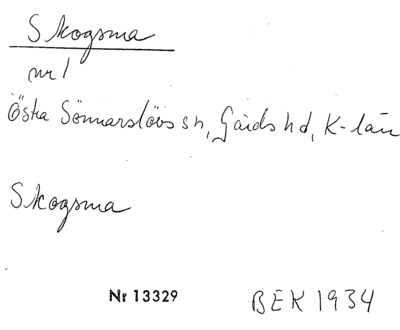 Skogsma
nr 1
Östra Sönnarslövs sn, Gärds hd, K-län
Skogsma
Nr 13329
BEK 1934